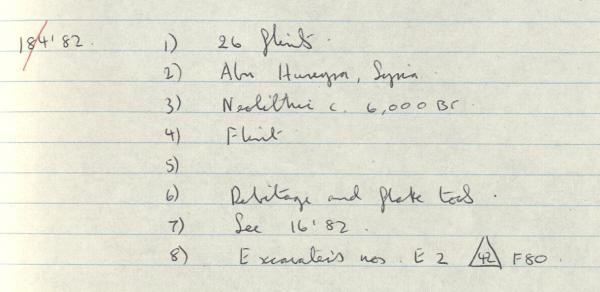 184'82. 1) 26 flints.
2) Abu Hureyra, Syria.
3) Neolithic c. 6,000 BC
4) Flint
5)
6) Debitage and flake tools.
7) See 16'82.
8) Excavator's nos. E 2 42 F80.